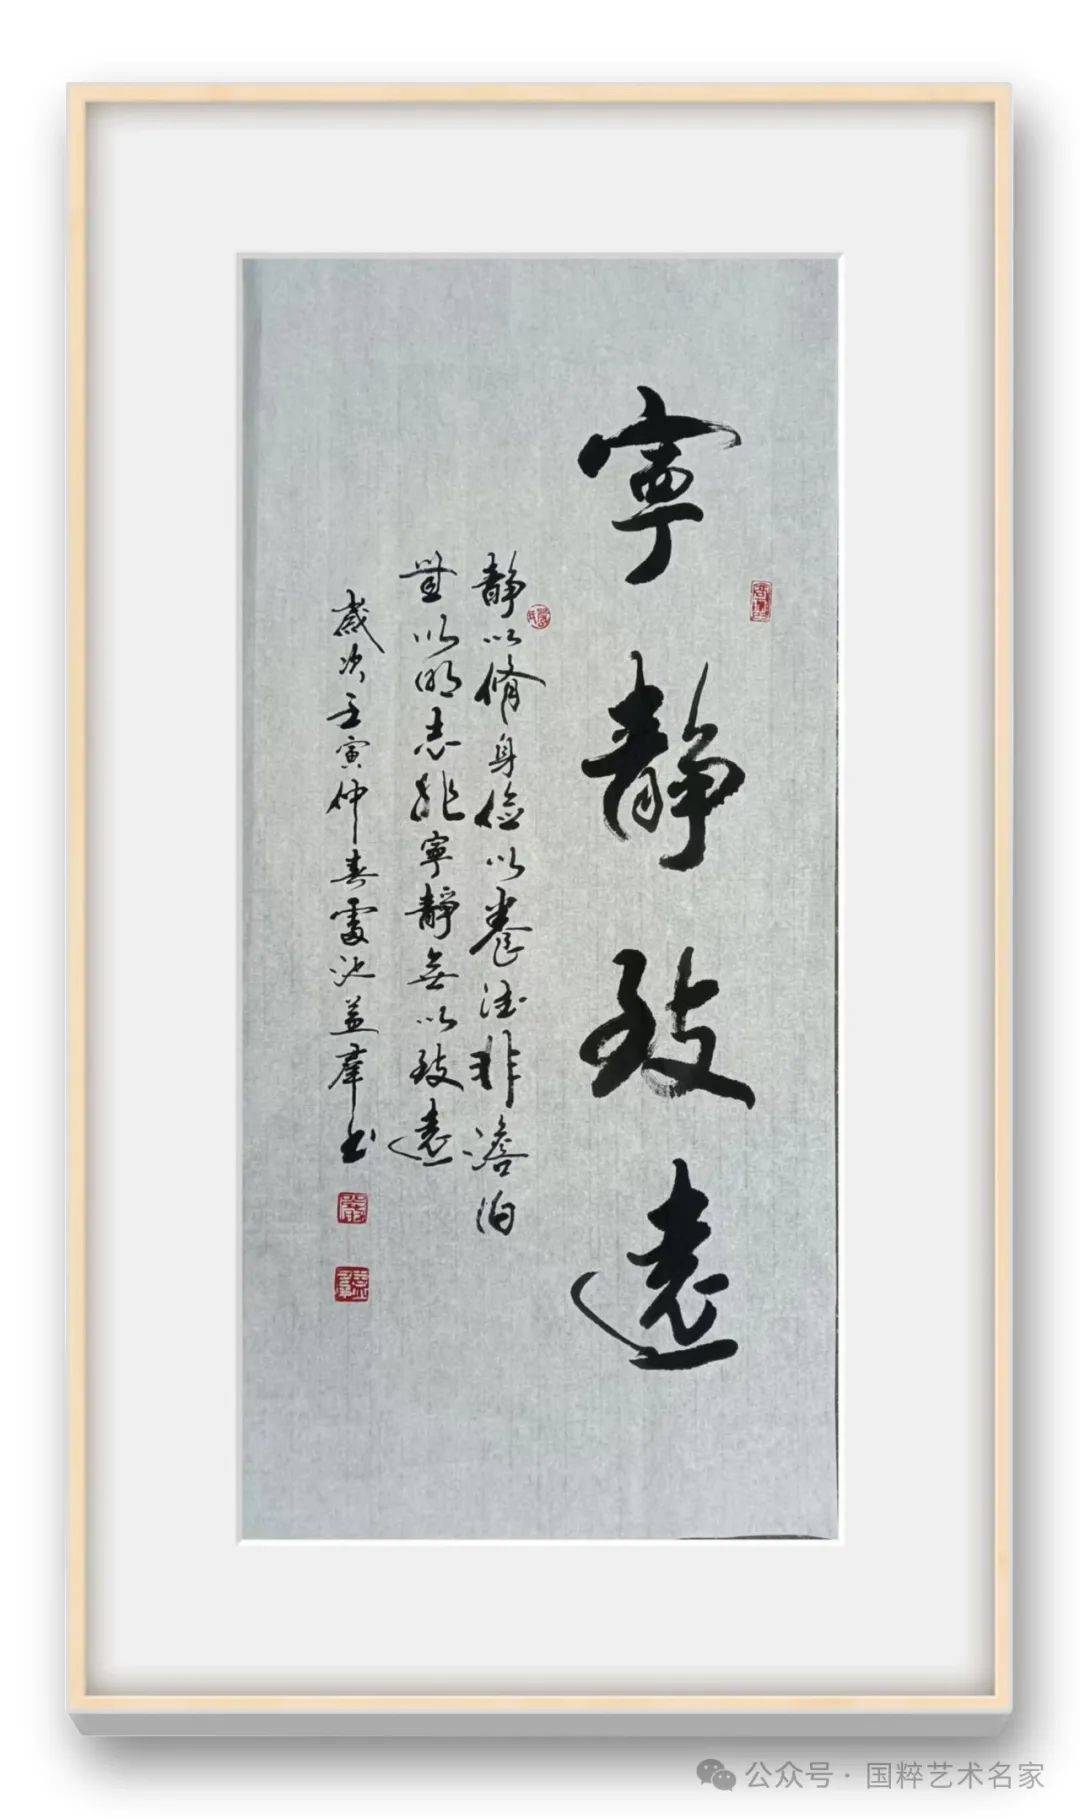 寧靜致遠
静以脩身儉以養德非澹泊
無以明志非寧靜無以致遠
歲次壬寅仲春雷池益群书
公众号·国粹艺术名家